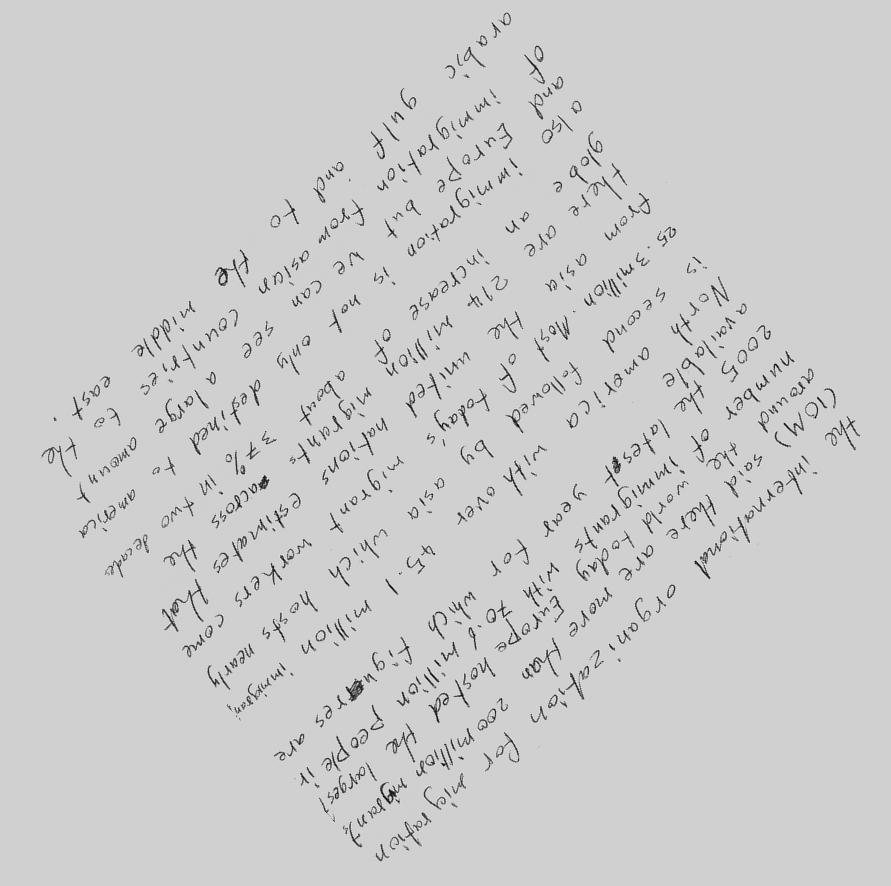 the international organization for migration
(IOM) said there are more than 200 million migrants
around the world today Europe hosted the largest
number of immigrants with 70.6 million people in
2005 the latest year for which figures are
available
North america with over 45.1 million immigran,
is second followed by asia which hosts nearly
25.3 million. Most of today's migrant workers come
from asia the united nations estimates that
there are 214 million migrants across the
globe an increase of about 37% in two decades
also immigration is not only destined to america
and Europe but we can see a large amount
of immigration from asian countries to the
arabic gulf and to the middle east.